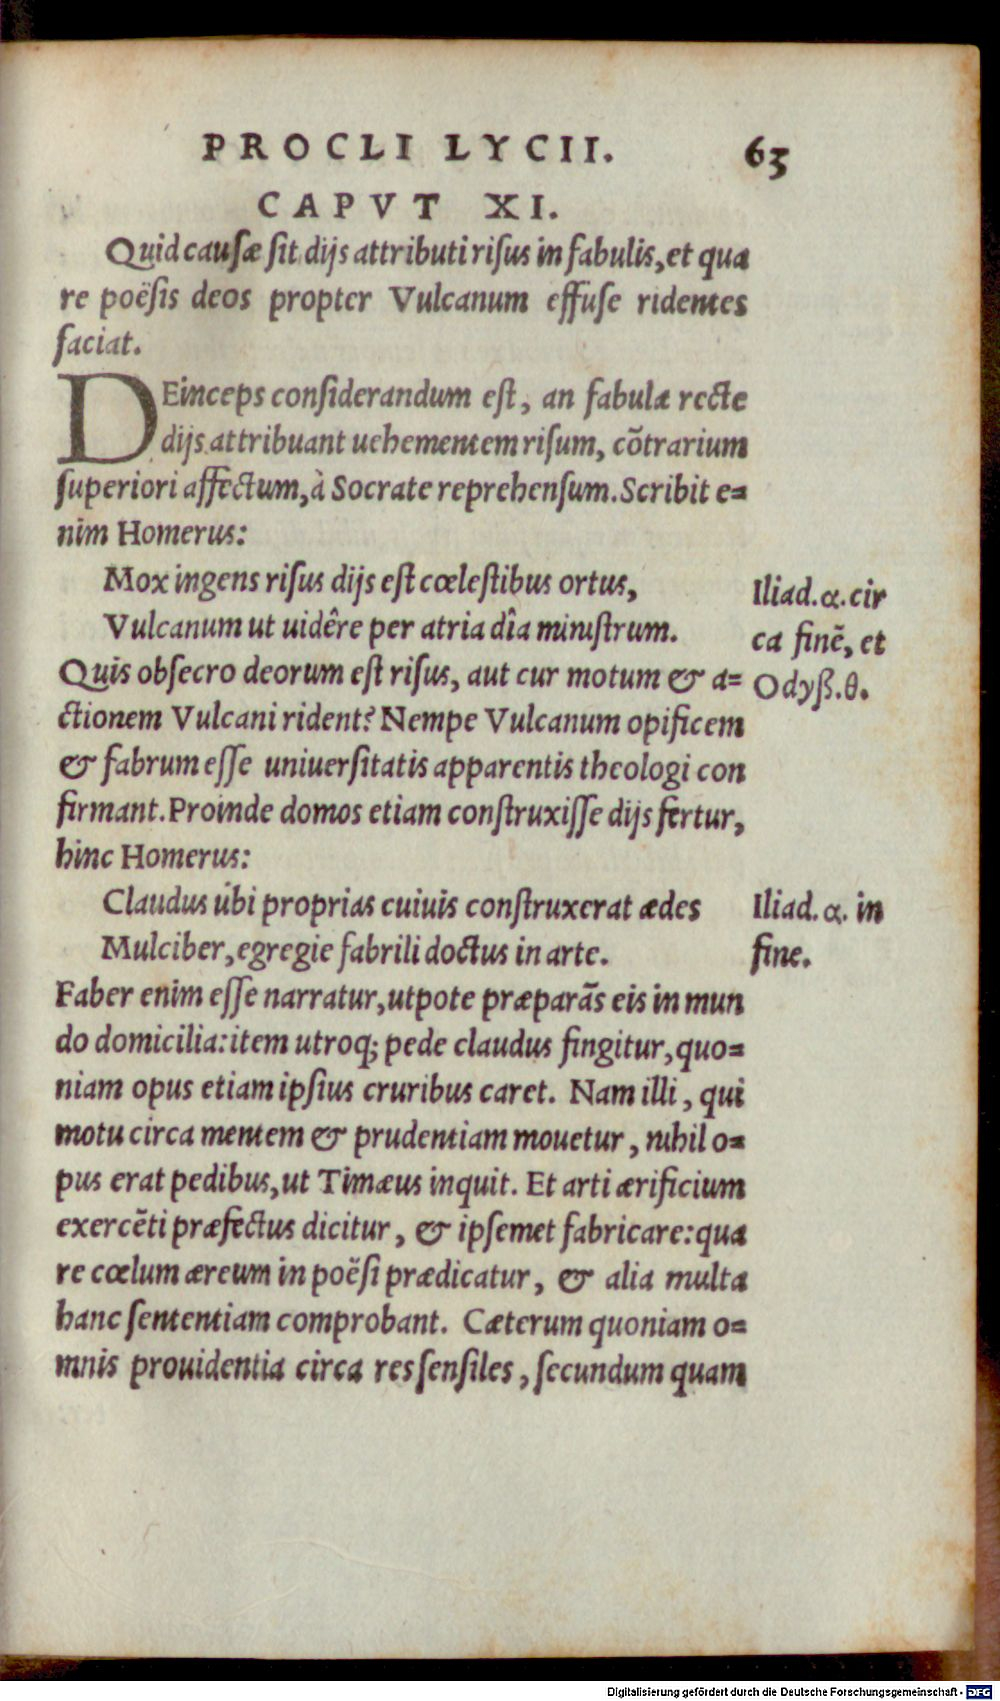 PROCLI LYCII. 63
CAPVT XI.
Quid causæ sit dijs attributi risus in fabulis, et qua
re poësis deos propter Vulcanum effuse ridentes
faciat.
DEinceps considerandum est, an fabulæ recte
dijs attribuant uehementem risum, cōtrarium
superiori affectum, à Socrate reprehensum. Scribit e=
nim Homerus:
Mox ingens risus dijs est cœlestibus ortus,
Vulcanum ut uidêre per atria dîa ministrum.
Iliad. α. cir
ca finē, et
Odyß. θ.
Quis obsecro deorum est risus, aut cur motum & a=
ctionem Vulcani rident? Nempe Vulcanum opificem
& fabrum esse uniuersitatis apparentis theologi con
firmant. Proinde domos etiam construxisse dijs fertur,
hinc Homerus:
Claudus ubi proprias cuiuis construxerat ædes
Mulciber, egregie fabrili doctus in arte.
Iliad. α. in
fine.
Faber enim esse narratur, utpote præparās eis in mun
do domicilia: item utroq; pede claudus fingitur, quo=
niam opus etiam ipsius cruribus caret. Nam illi, qui
motu circa mentem & prudentiam mouetur, nihil o=
pus erat pedibus, ut Timæus inquit. Et arti ærificium
exercēti præfectus dicitur, & ipsemet fabricare: qua
re cœlum æreum in poësi prædicatur, & alia multa
hanc sententiam comprobant. Cæterum quoniam o=
mnis prouidentia circa res sensiles, secundum quam
Digitalisierung gefördert durch die Deutsche Forschungsgemeinschaft - DFG